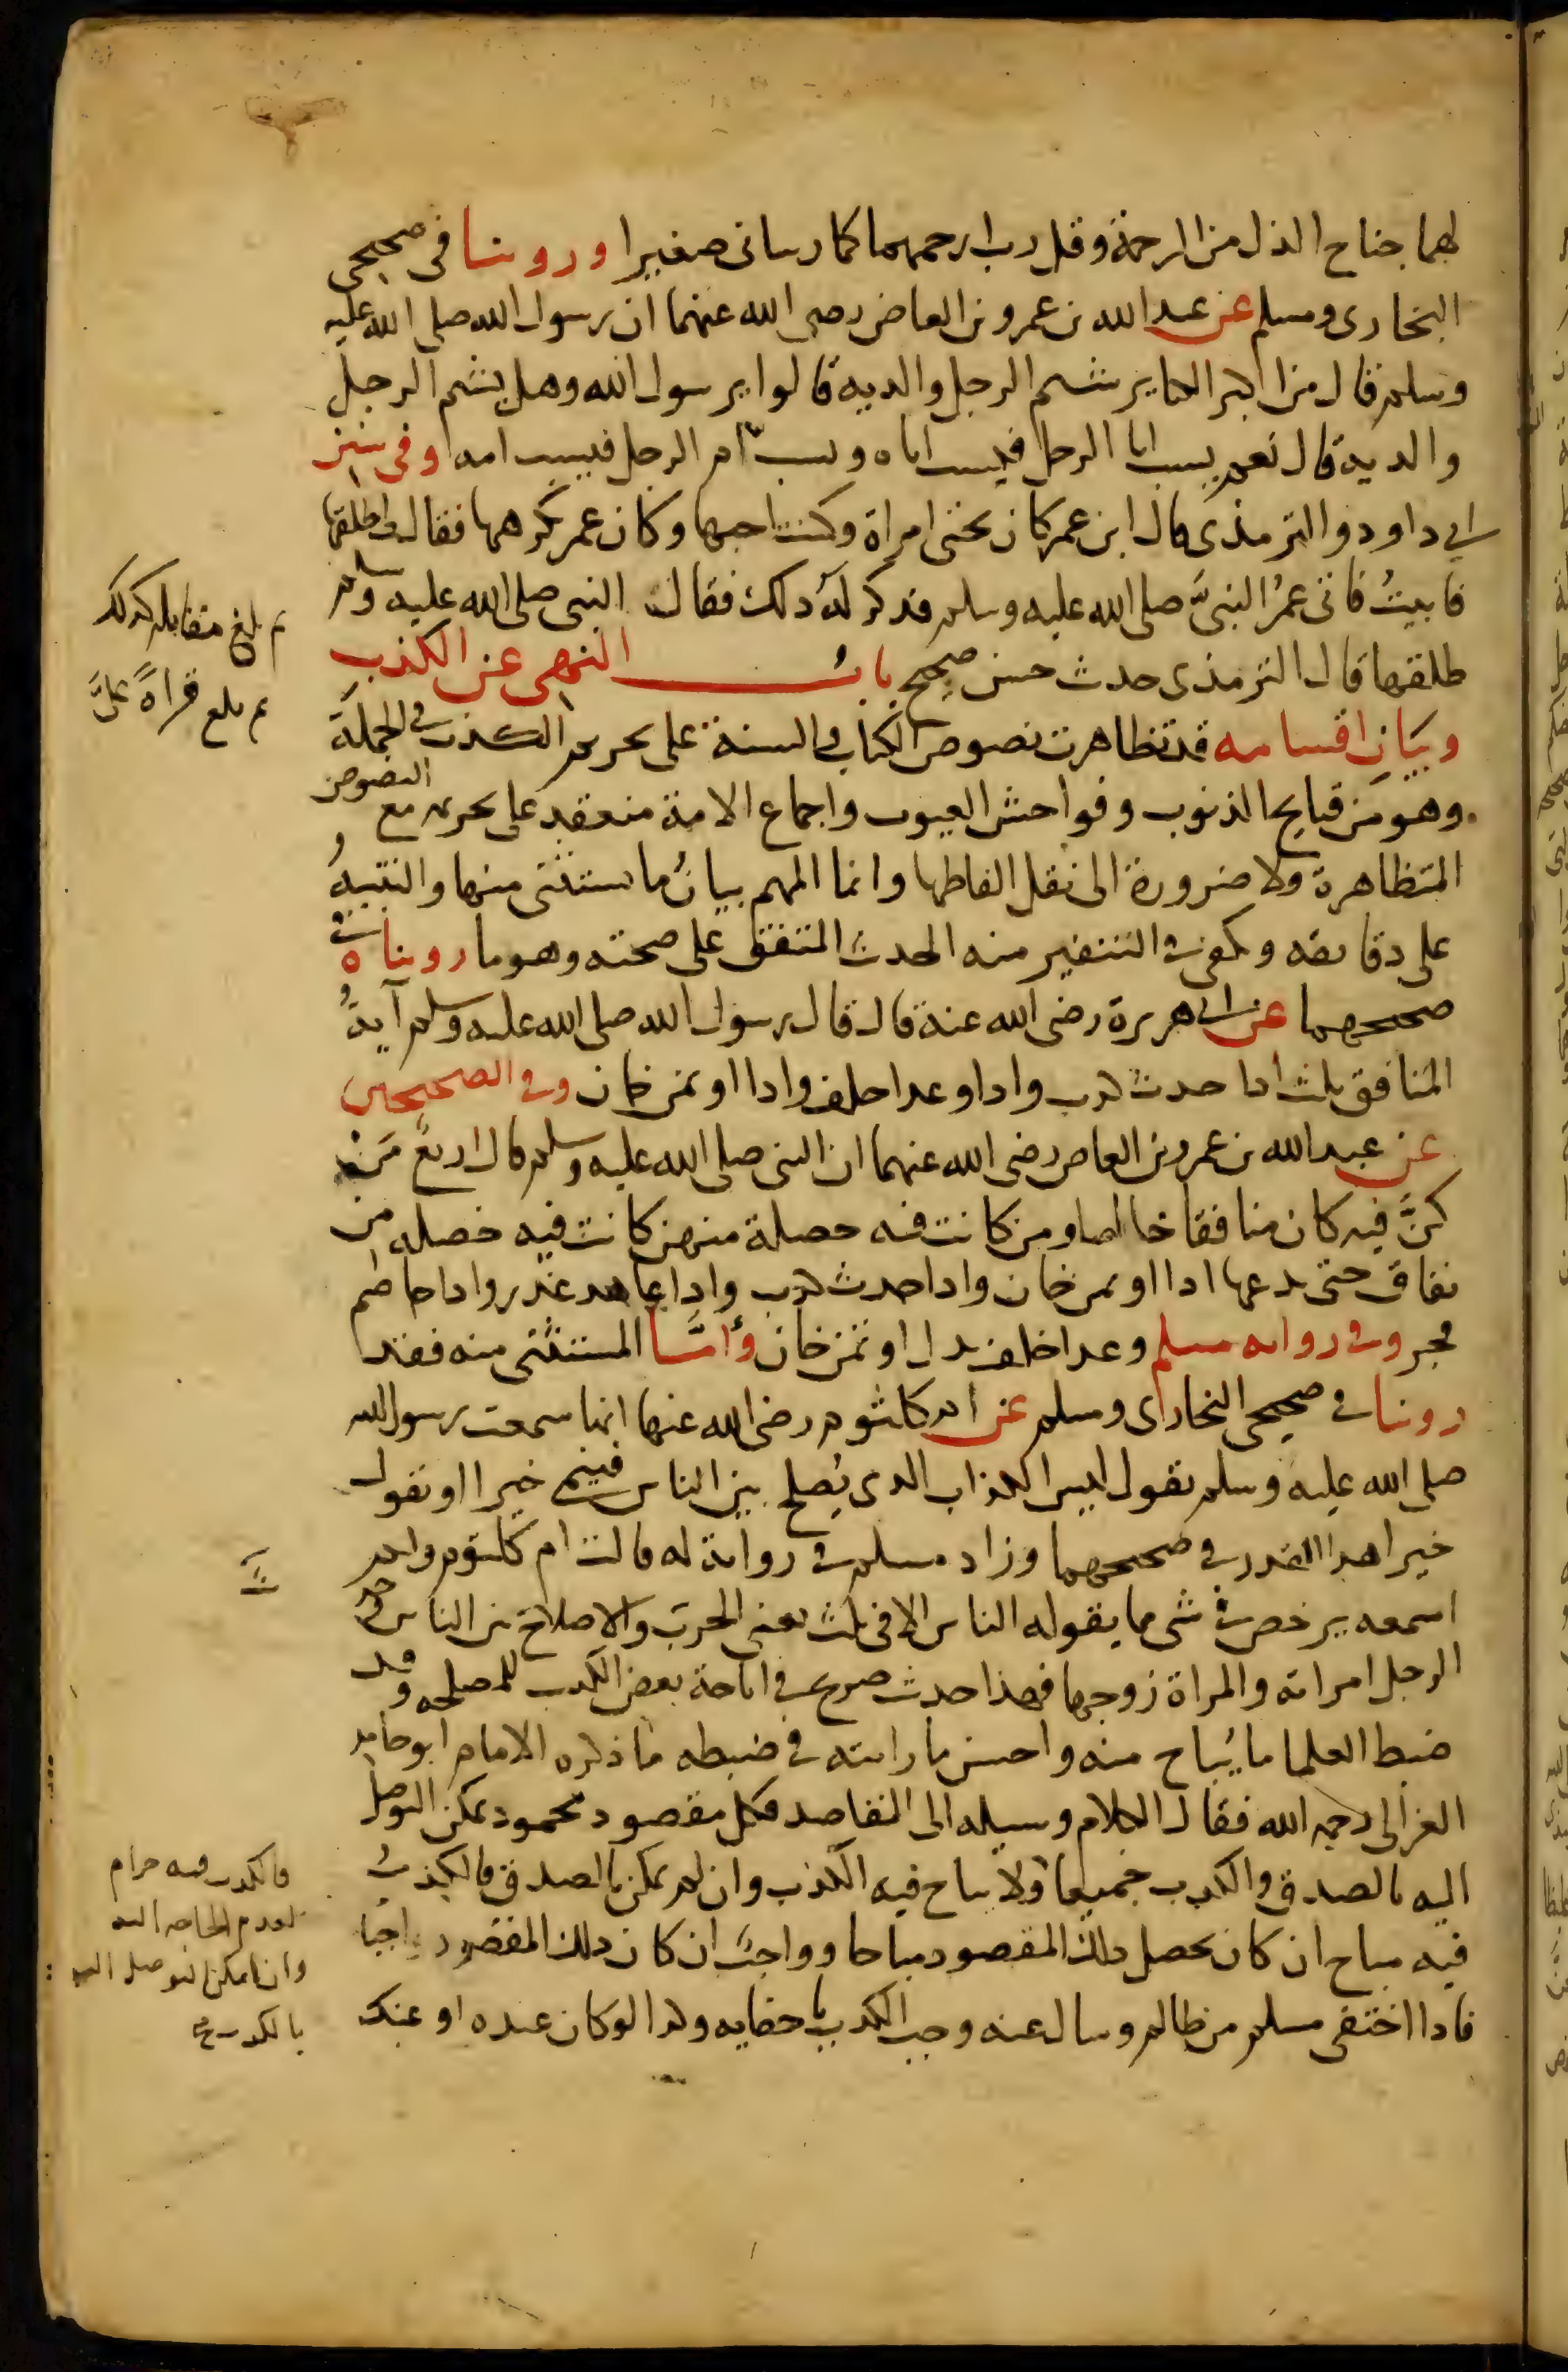 لهما جناح الذل من الرحمة وقل رب ارحمهما كما ربيانى صغيرا وروينا فى صحيحى
البخارى ومسلم عن عبد الله بن عمرو بن العاص رضى الله عنهما ان رسول الله صلى الله عليه
وسلم قال من اكبر الكباير شتم الرجل والديه قالوا يرسول الله وهل يشتم الرجل
والديه قال نعم يسب ابا الرجل فيسب اباه ويسب ام الرجل فيسب امه وفى سنن
ابى داود والترمذى قال ابن عمر كان تحتى امراة وكنت احبها وكان عمر يكرهها فقال لى طلقها
فابيتُ فاتى عمرُ النبىَّ صلى الله عليه وسلم فذكر لهُ ذلك فقال النبى صلى الله عليه وسلم
طلقها قال الترمذى حديث حسن صحيح بابُ النهى عن الكذب
وبيَانِ اقسامه قد تظاهرت نصوص الكتاب والسنة على تحريم الكذب فى الجملة
وهو من قبايح الذنوب وفواحش العيوب واجماع الامة منعقد على تحريمه مع النصوص
المتظاهرة ولا ضرورة الى نقل الفاظها وانما المهم بيانُ ما يستثنى منها والتنبيهُ
على دقايقه ويكفى فى التنفير منه الحديث المتفق على صحته وهو ما رويناه فى
صحيحهما عن ابى هريرة رضى الله عنه قال قال رسول الله صلى الله عليه وسلم آيةُ
المنافق ثلث اذا حدث كذب واذا وعد اخلف واذا اوتمن خان وفى الصحيحين
عن عبد الله بن عمرو بن العاص رضى الله عنهما ان النبى صلى الله عليه وسلم قال اربعٌ مَنْ
كنَّ فيه كان منافقا خالصا ومن كانت فيه خصلة منهن كانت فيه خصله من
نفاق حتى يدعها اذا اوتمن خان واذا حدث كذب واذا عاهد غدر واذا خاصم
فجر وفى روايه مسلم وعد اخلف بدل اوتمن خان وأمَّا المستثنى منه فقد
روينا فى صحيحى البخارى ومسلم عن ام كلثوم رضى الله عنها انها سمعت رسول الله
صلى الله عليه وسلم يقول ليس الكذاب الذى يُصلح بين الناس فينمى خيرا او يقول
خيرا هذا القدر فى صحيحهما وزاد مسلم فى رواية له قالت ام كلثوم ولم
اسمعه يرخص فى شى مما يقوله الناس الا فى ثلث يعنى الحرب والاصلاح بين الناس وحديث
الرجل امراته والمراة زوجها فهذا حديث صريح فى اباحة بعض الكذب للمصلحه وقد
ضبط العلما ما يُباح منه واحسن ما رايته فى ضبطه ما ذكره الامام ابو حامد
الغزالى رحمه الله فقال الكلام وسيله الى المقاصد فكل مقصود محمود يمكن التوصل
اليه بالصدق والكذب جميعا ولا يباح فيه الكذب وان لم يمكن بالصدق فالكذبُ
فيه مباح ان كان تحصيل ذلك المقصود مباحا وواجبٌ ان كان ذلك المقصود واجبا
فاذا اختفى مسلم من ظالم وسال عنه وجب الكذب باخفايه وكذا لو كان عنده او عند
ثم بلغ مقابله كذلك
ثم بلغ قراةً علىَّ
فالكذب فيه حرام
لعدم الحاجه اليه
وان امكن التوصل اليه
بالكذب صح